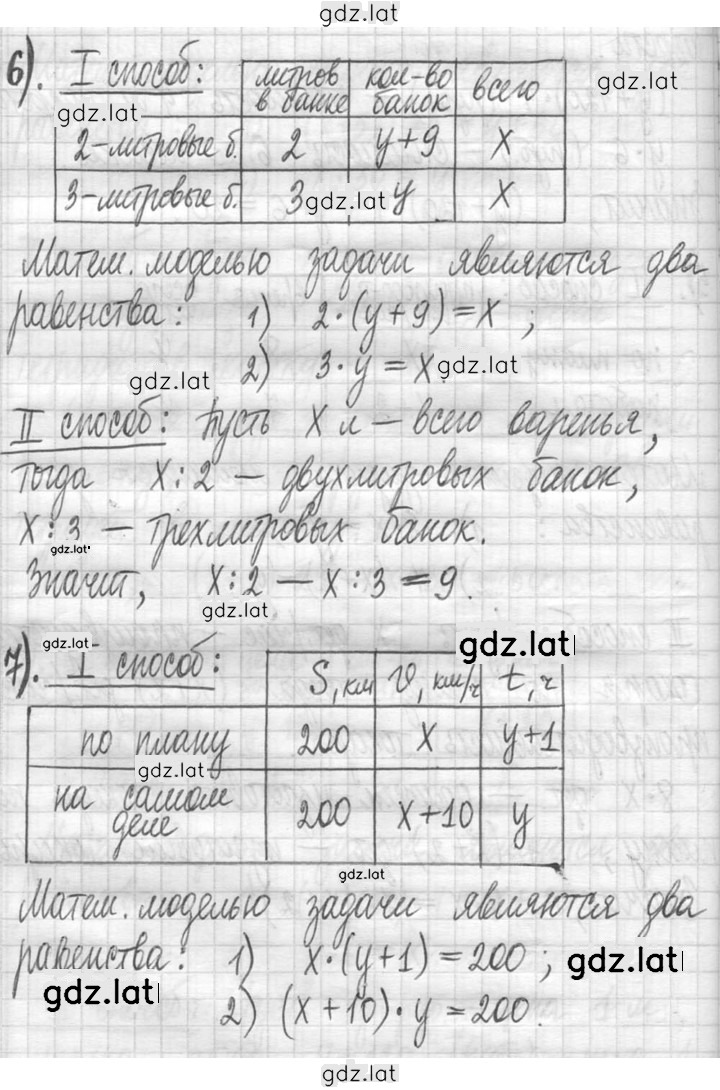 gdz.lat
6). I способ: литров в банке кол-во банок всего
gdz.lat gdz.lat
2-литровые б. 2 y+9 x
3-литровые б. 3 y x
gdz.lat
Матем. моделью задачи являются два
равенства: 1) 2·(y+9)=x ;
2) 3·y=x.
gdz.lat gdz.lat
II способ: Пусть x л — всего варенья,
тогда x:2 — двухлитровых банок,
x:3 — трехлитровых банок.
gdz.lat
Значит, x:2 — x:3 = 9.
gdz.lat
gdz.lat gdz.lat
7). I способ: S, км v, км/ч t, ч
по плану 200 x y+1
gdz.lat
на самом деле 200 x+10 y
gdz.lat
Матем. моделью задачи являются два
равенства: 1) x·(y+1)=200 ;
gdz.lat gdz.lat
2) (x+10)·y=200.
gdz.lat